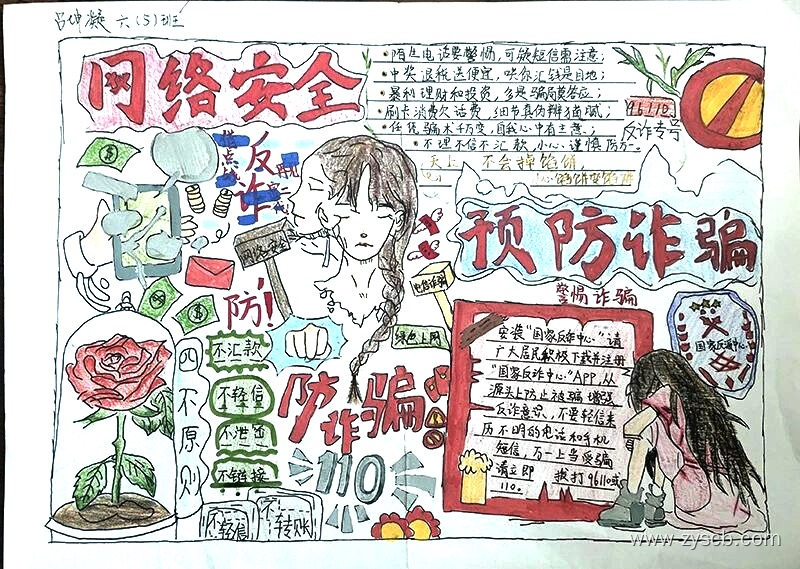 吕坤凝 六(5)班
网络安全
陌生电话要警惕,可疑短信需注意;
中奖退税送便宜,哄你汇钱是目地;
暴利理财和投资,多是骗局莫答应;
刷卡消费欠话费,细节真伪辨猫腻;
任凭骗术千万变,自我心中有主意;
不理不信不汇款,小心谨慎防万一。
天上 不会掉馅饼,
96110
反诈专号
反诈
防!
网络安全
电信诈骗
绿色上网
预防诈骗
警惕诈骗
国家反诈中心
安装“国家反诈中心”:请
广大居民积极下载并注册
“国家反诈中心”App,从
源头上防止被骗,增强
反诈意识,不要轻信来
历不明的电话和手机
短信,万一上当受骗
请立即 拨打96110或
110.
四不原则
不汇款
不轻信
不泄密
不链接
防诈骗吧
110
不轻信
不转账
www.zyscb.com